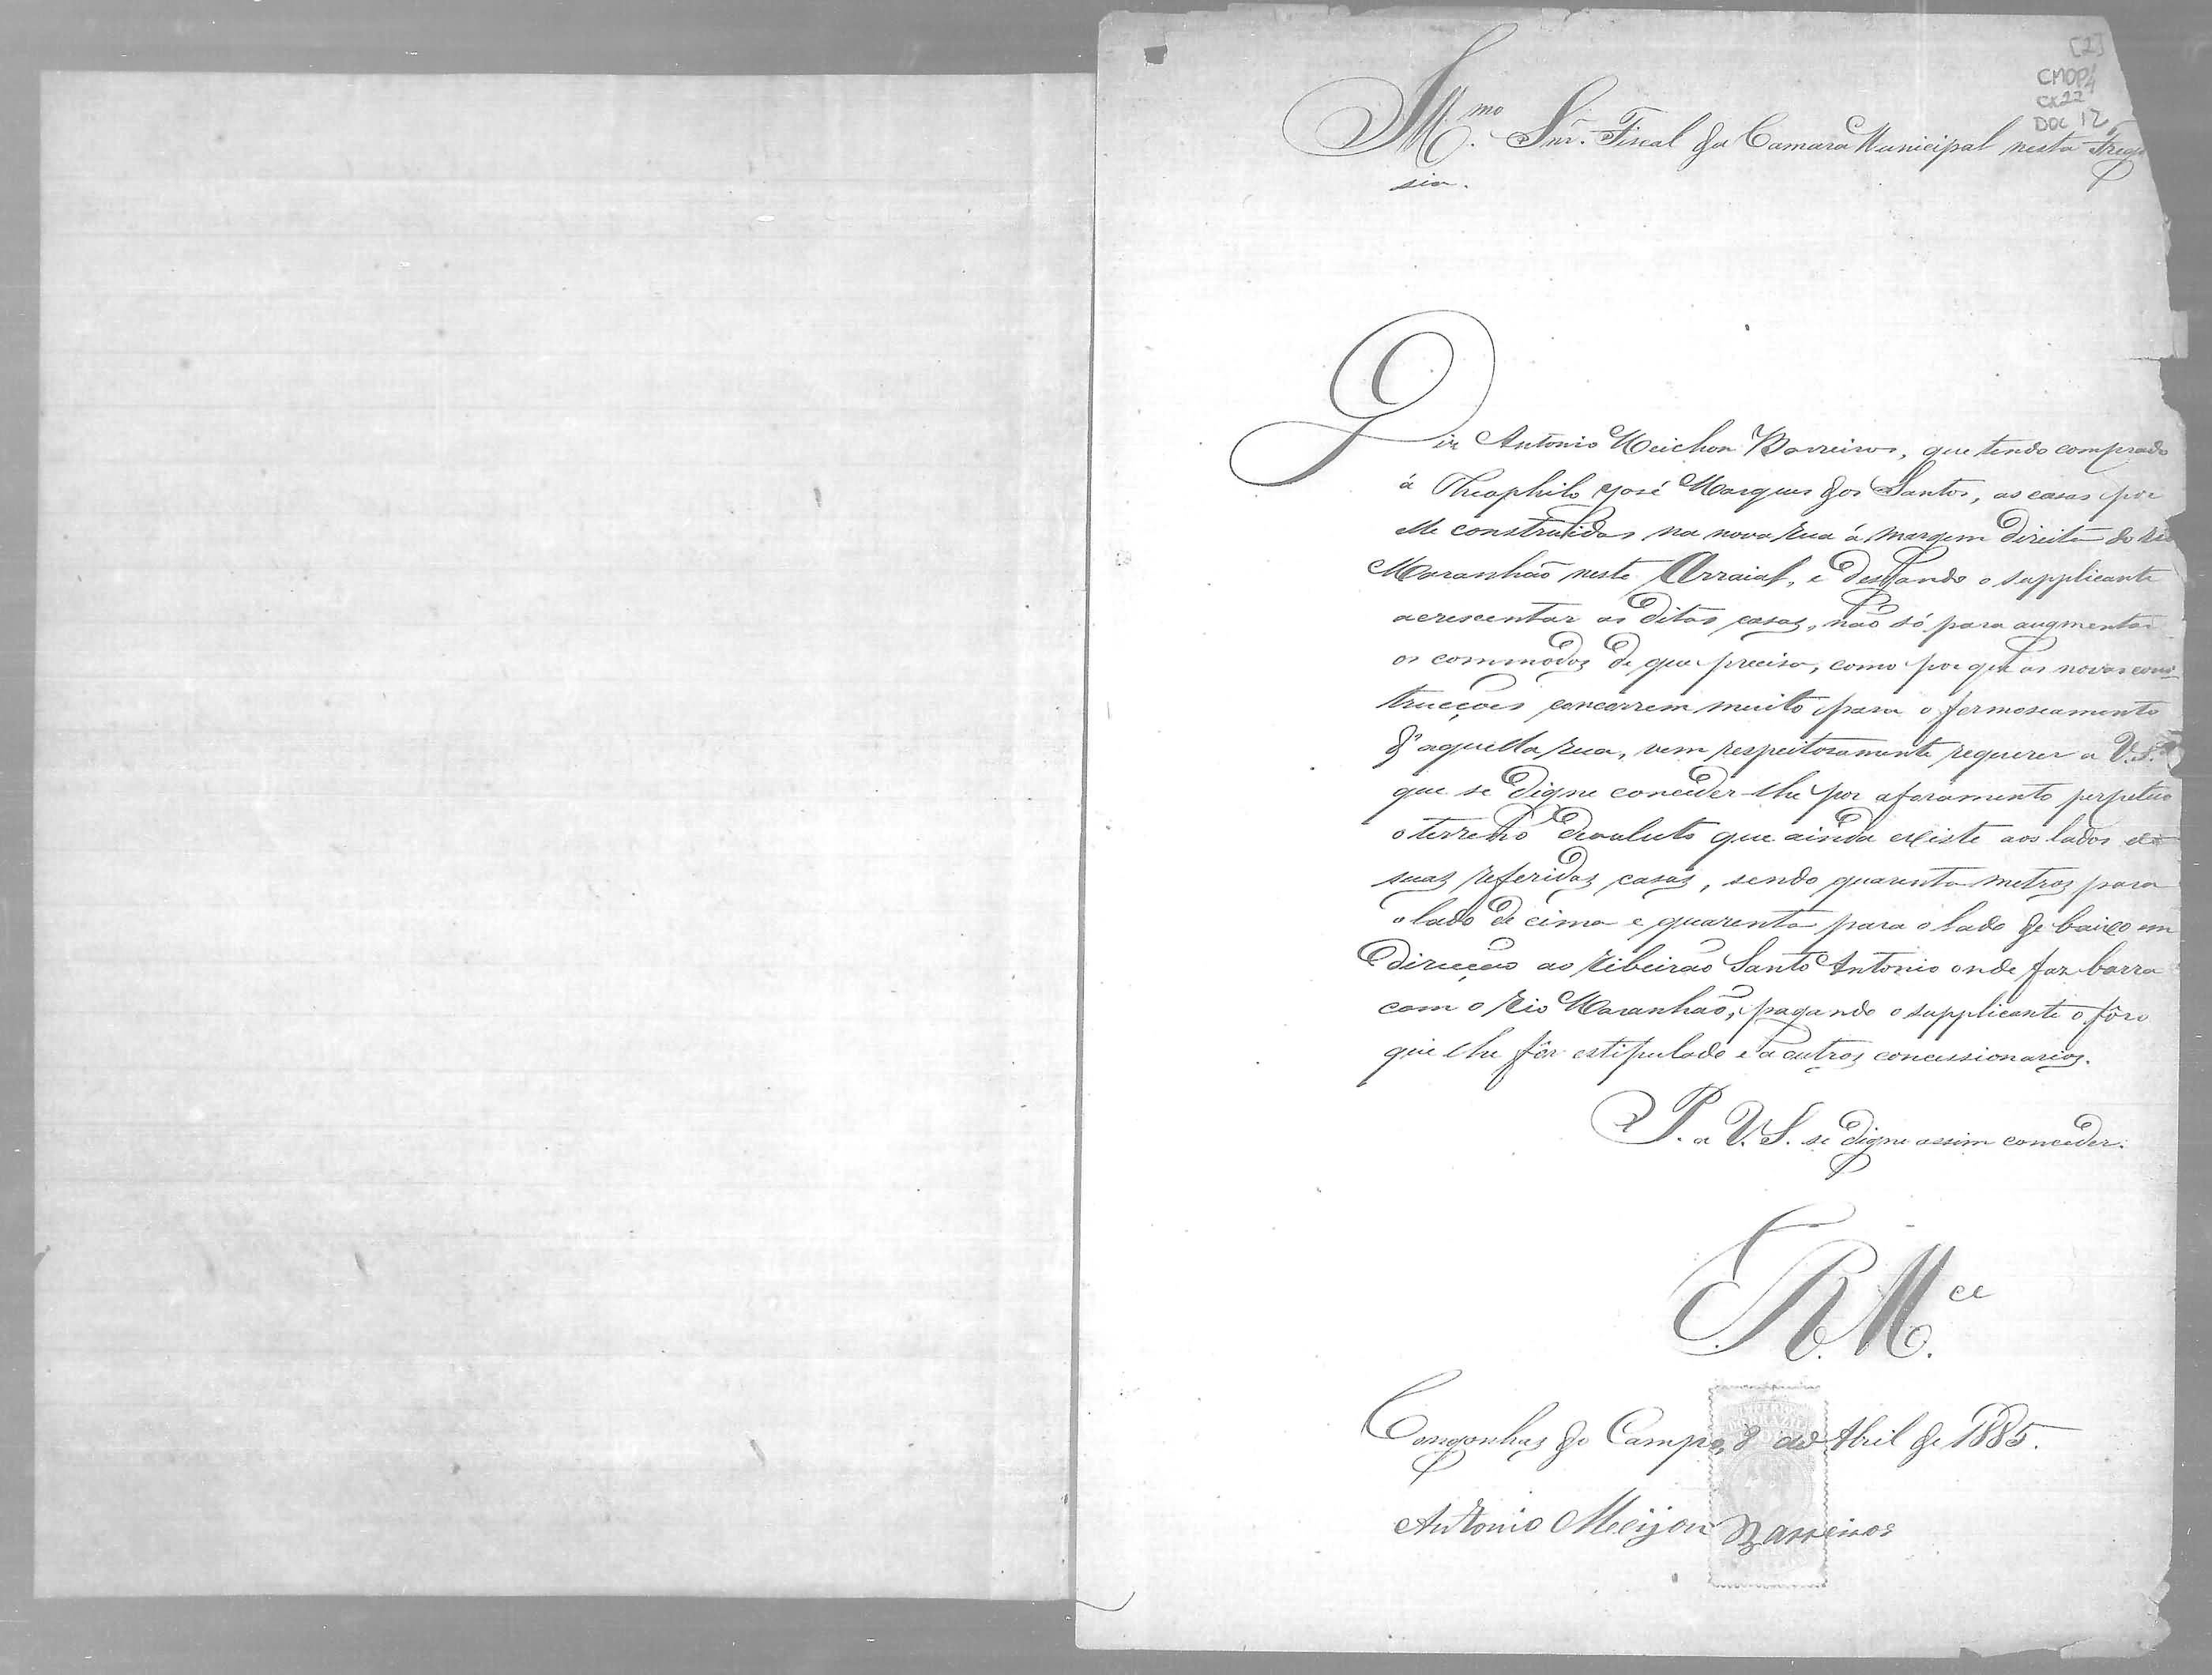 [2]
CMOP/
CX22
DOC 12
Ill.mo Snr. Fiscal da Camara Municipal nesta Fregue
sia.
Diz Antonio Meichon Barreiros, que tendo comprado
á Theophilo José Marques dos Santos, as casas por
elle construidas na nova rua á margem direita do rio
Maranhão neste Arraial, e desejando o supplicante
acrescentar as ditas casas, não só para augmentar
os commodos de que precisa, como por que as novas cons-
trucções concorrem muito para o formoseamento
d'aquella rua, vem respeitosamente requerer a V.S.ª
que se digne conceder-lhe por aforamento perpetuo
o terreno devoluto que ainda existe aos lados de
suas referidas casas, sendo quarenta metros para
o lado de cima e quarenta para o lado de baixo em
direcção ao ribeirão Santo Antonio onde faz barra
com o rio Maranhão, pagando o supplicante o fôro
que lhe fôr estipulado e a outros concessionarios.
P. a V. S. se digne assim conceder.
E. R. M.ce
Congonhas do Campo, 8 de Abril de 1885.
Antonio Meijon Barreiros